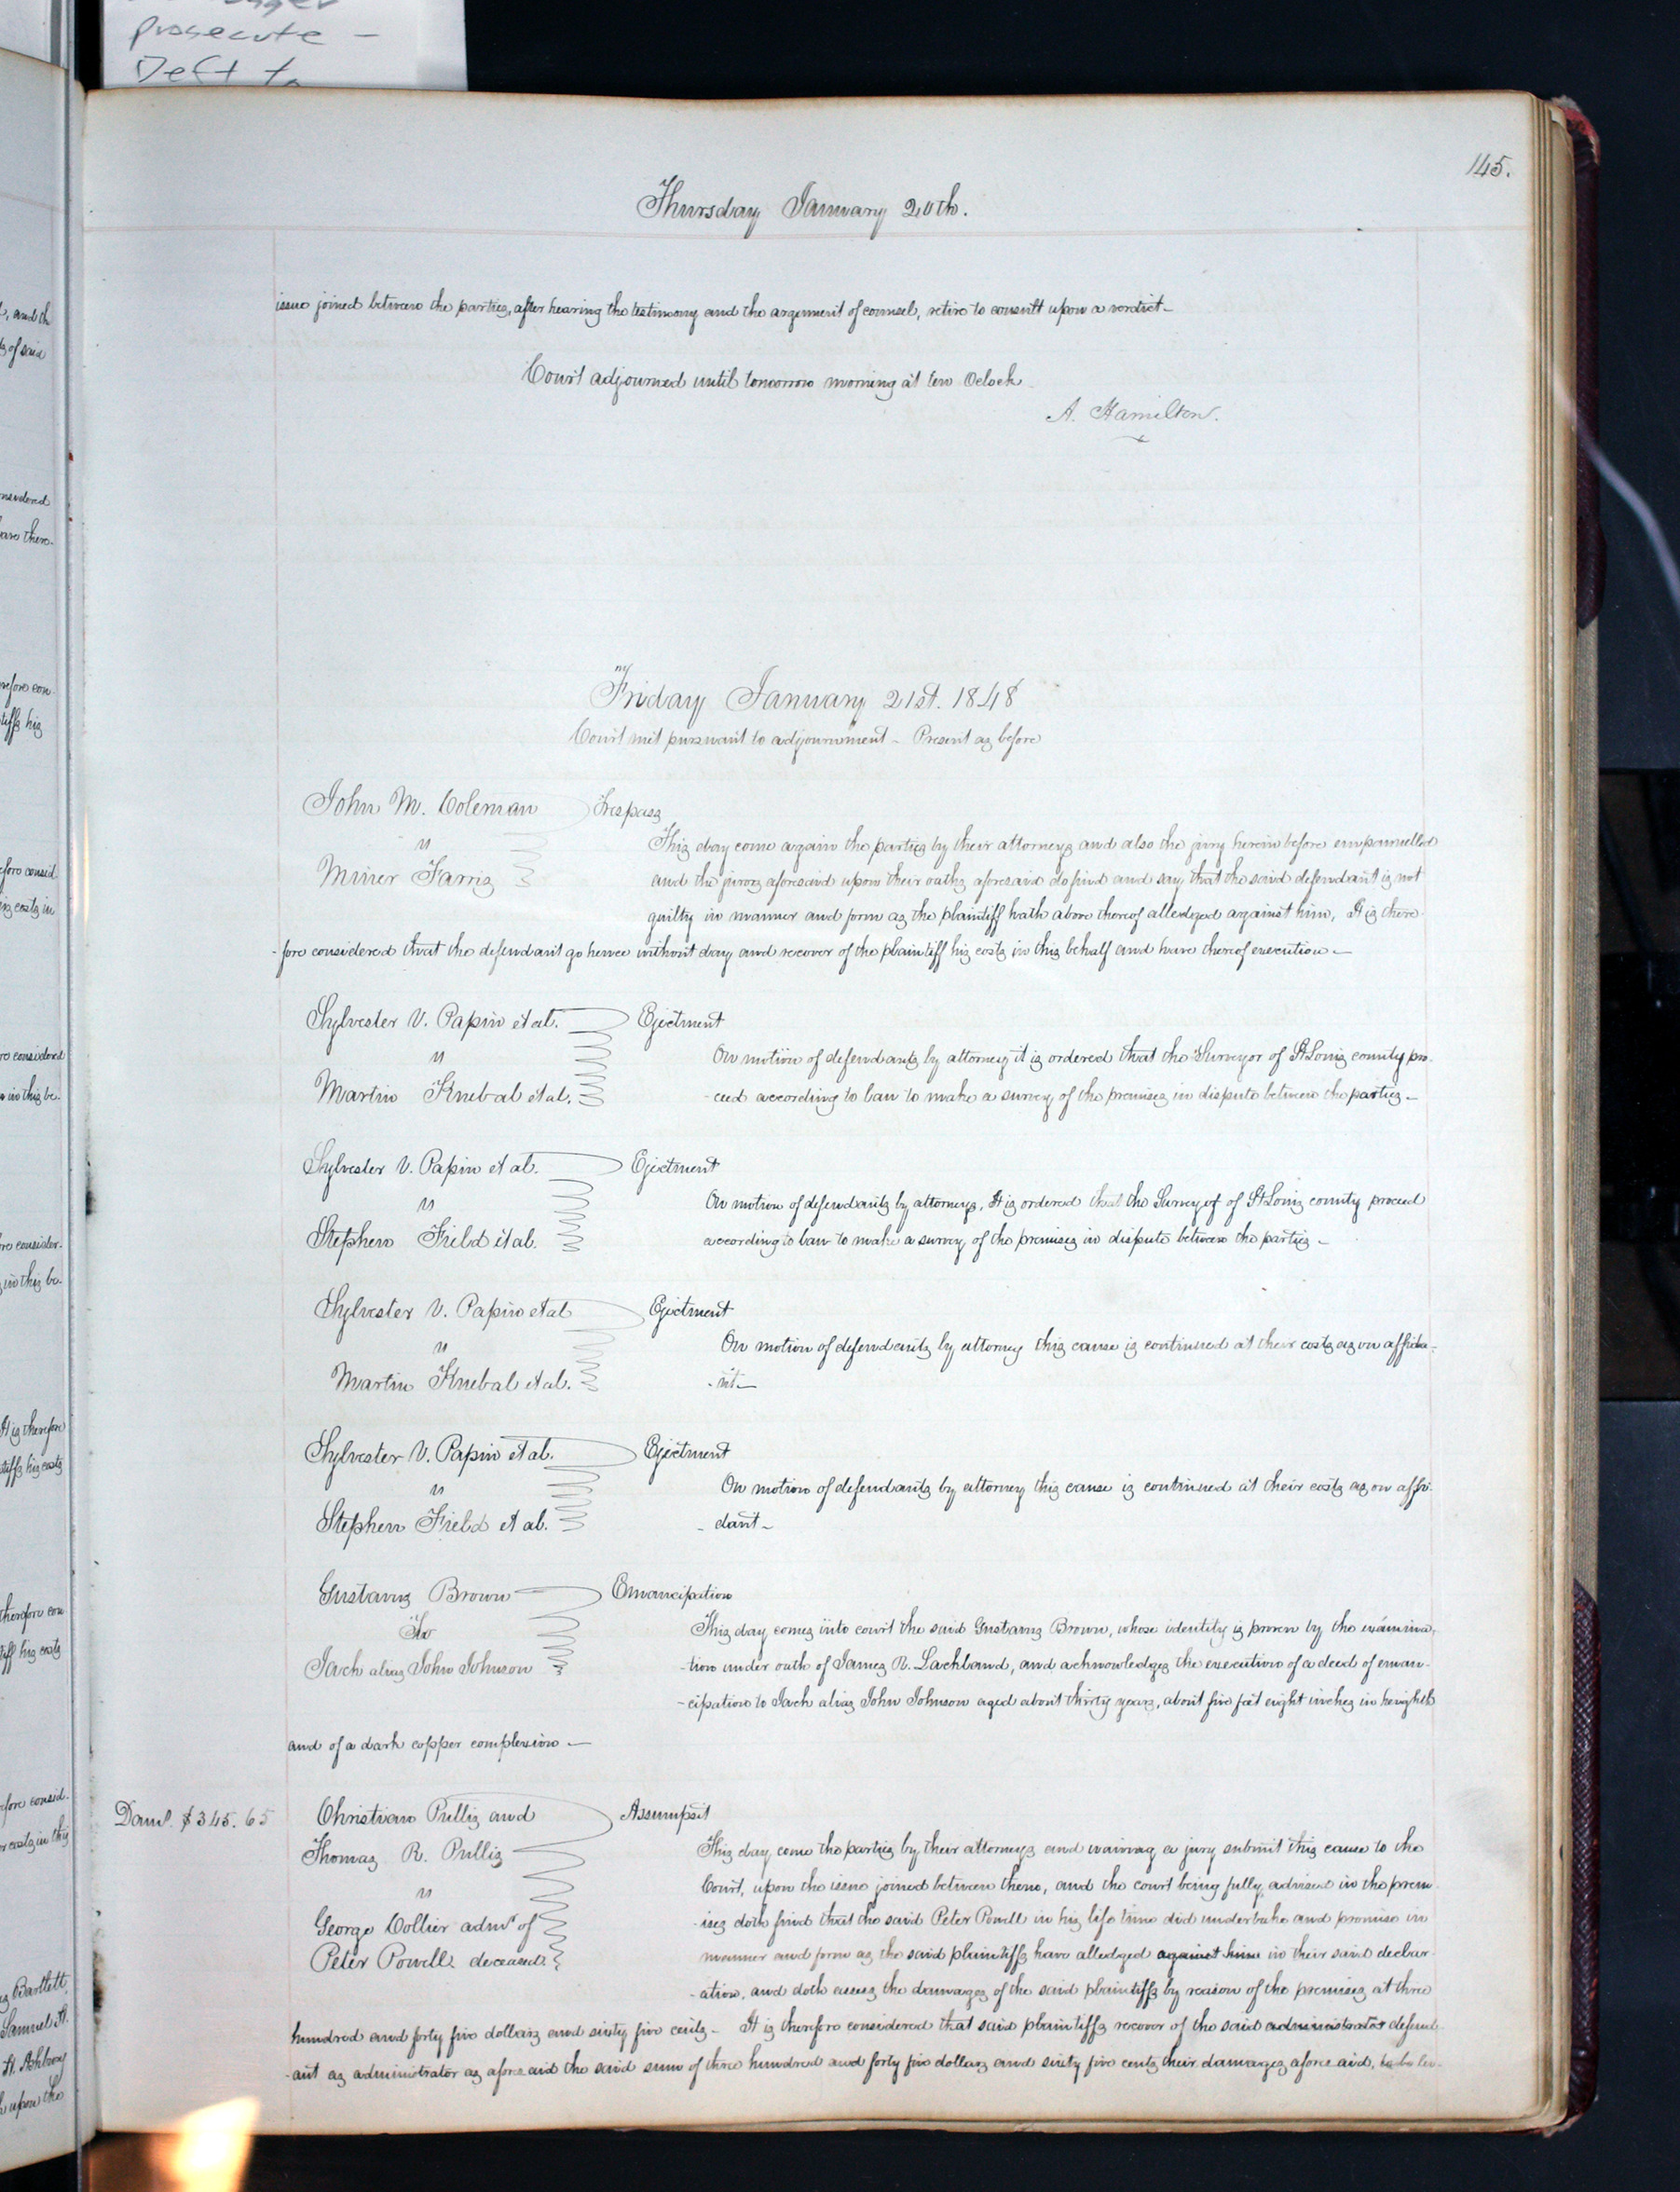 prosecute –
Deft to
145.
Thursday January 20th.
issue joined between the parties, after hearing the testimony and the argument of counsel, retire to consult upon a verdict –
Court adjourned until tomorrow morning at ten Oclock
A. Hamilton.
Friday January 21st. 1848
Court met pursuant to adjournment – Present as before
John M. Coleman Trespass
vs
Miner Farris
This day come again the parties by their attorneys and also the jury herein before empannelled
and the jurors aforesaid upon their oaths aforesaid do find and say that the said defendant is not
guilty in manner and form as the plaintiff hath above thereof alledged against him, It is there-
-fore considered that the defendant go hence without day and recover of the plaintiff his costs in this behalf and have thereof execution –
Sylvester V. Papin et al. Ejectment
vs
Martin Knebal et al.
On motion of defendants by attorney it is ordered that the Surveyor of St Louis county pro-
-ceed according to law to make a survey of the premises in dispute between the parties –
Sylvester V. Papin et al. Ejectment
vs
Stephen Field et al.
On motion of defendants by attorneys, It is ordered that the Surveyor of St Louis county proceed
according to law to make a survey of the premises in dispute between the parties –
Sylvester V. Papin et al Ejectment
vs
Martin Knebal et al.
On motion of defendants by attorney this cause is continued at their costs as on affida-
-vit –
Sylvester V. Papin et al. Ejectment
vs
Stephen Field et al.
On motion of defendants by attorney this cause is continued at their costs as on affi-
-davit –
Gustavus Brown Emancipation
To
Jack alias John Johnson
This day comes into court the said Gustavus Brown, whose identity is proven by the examina-
-tion under oath of James R. Lackland, and acknowledges the execution of a deed of eman-
-cipation to Jack alias John Johnson aged about thirty years, about five feet eight inches in heighth
and of a dark copper complexion –
Dam's. $345.65
Christian Pullis and Assumpsit
Thomas R. Pullis
vs
George Collier admr of
Peter Powell deceased.
This day come the parties by their attorneys and waiving a jury submit this cause to the
Court, upon the issue joined between them, and the court being fully advised in the prem-
-ises doth find that the said Peter Powell in his life time did undertake and promise in
manner and form as the said plaintiffs have alledged against him in their said declar-
-ation, and doth assess the damages of the said plaintiffs by reason of the premises at three
hundred and forty five dollars and sixty five cents – It is therefore considered that said plaintiffs recover of the said administrator defend-
-ant as administrator as aforesaid the said sum of three hundred and forty five dollars and sixty five cents their damages aforesaid, to be lev-